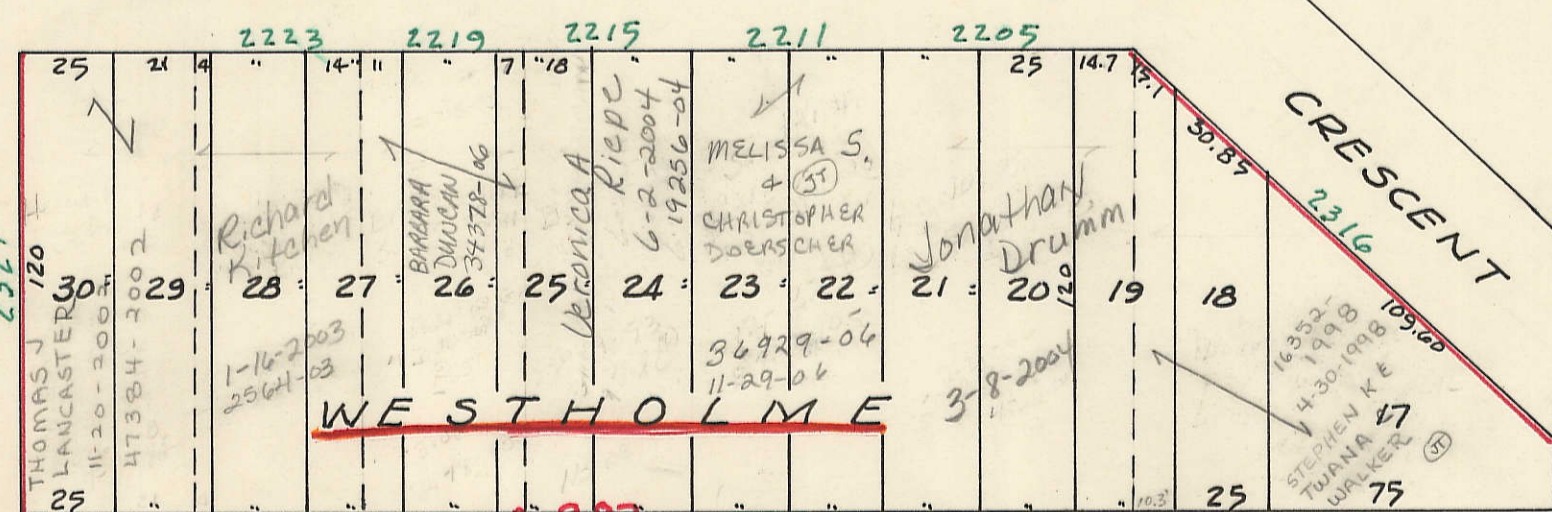 2223 2219 2215 2211 2205
25 21 4 " 14" 11 " 7 "18 " " " " 25 14.7 15.1
CRESCENT
30.85
2316
109.60
120
30 = 29 = 28 = 27 = 26 = 25 = 24 = 23 = 22 = 21 = 20 120 19 18
17
THOMAS J +
LANCASTER
11-20-2002
47384-2002
Richard
Kitchen
1-16-2003
2564-03
BARBARA
DUNCAN
34378-06
Veronica A
Riepe
6-2-2004
19256-04
MELISSA S.
+ JT
CHRISTOPHER
DOERSCHER
36929-06
11-29-06
Jonathan
Drumm
3-8-2004
16352-
1998
4-30-1998
STEPHEN K E
TWANA
WALKER JT
WESTHOLME
25 " " " " " " " " " " " 10.3' 25 75